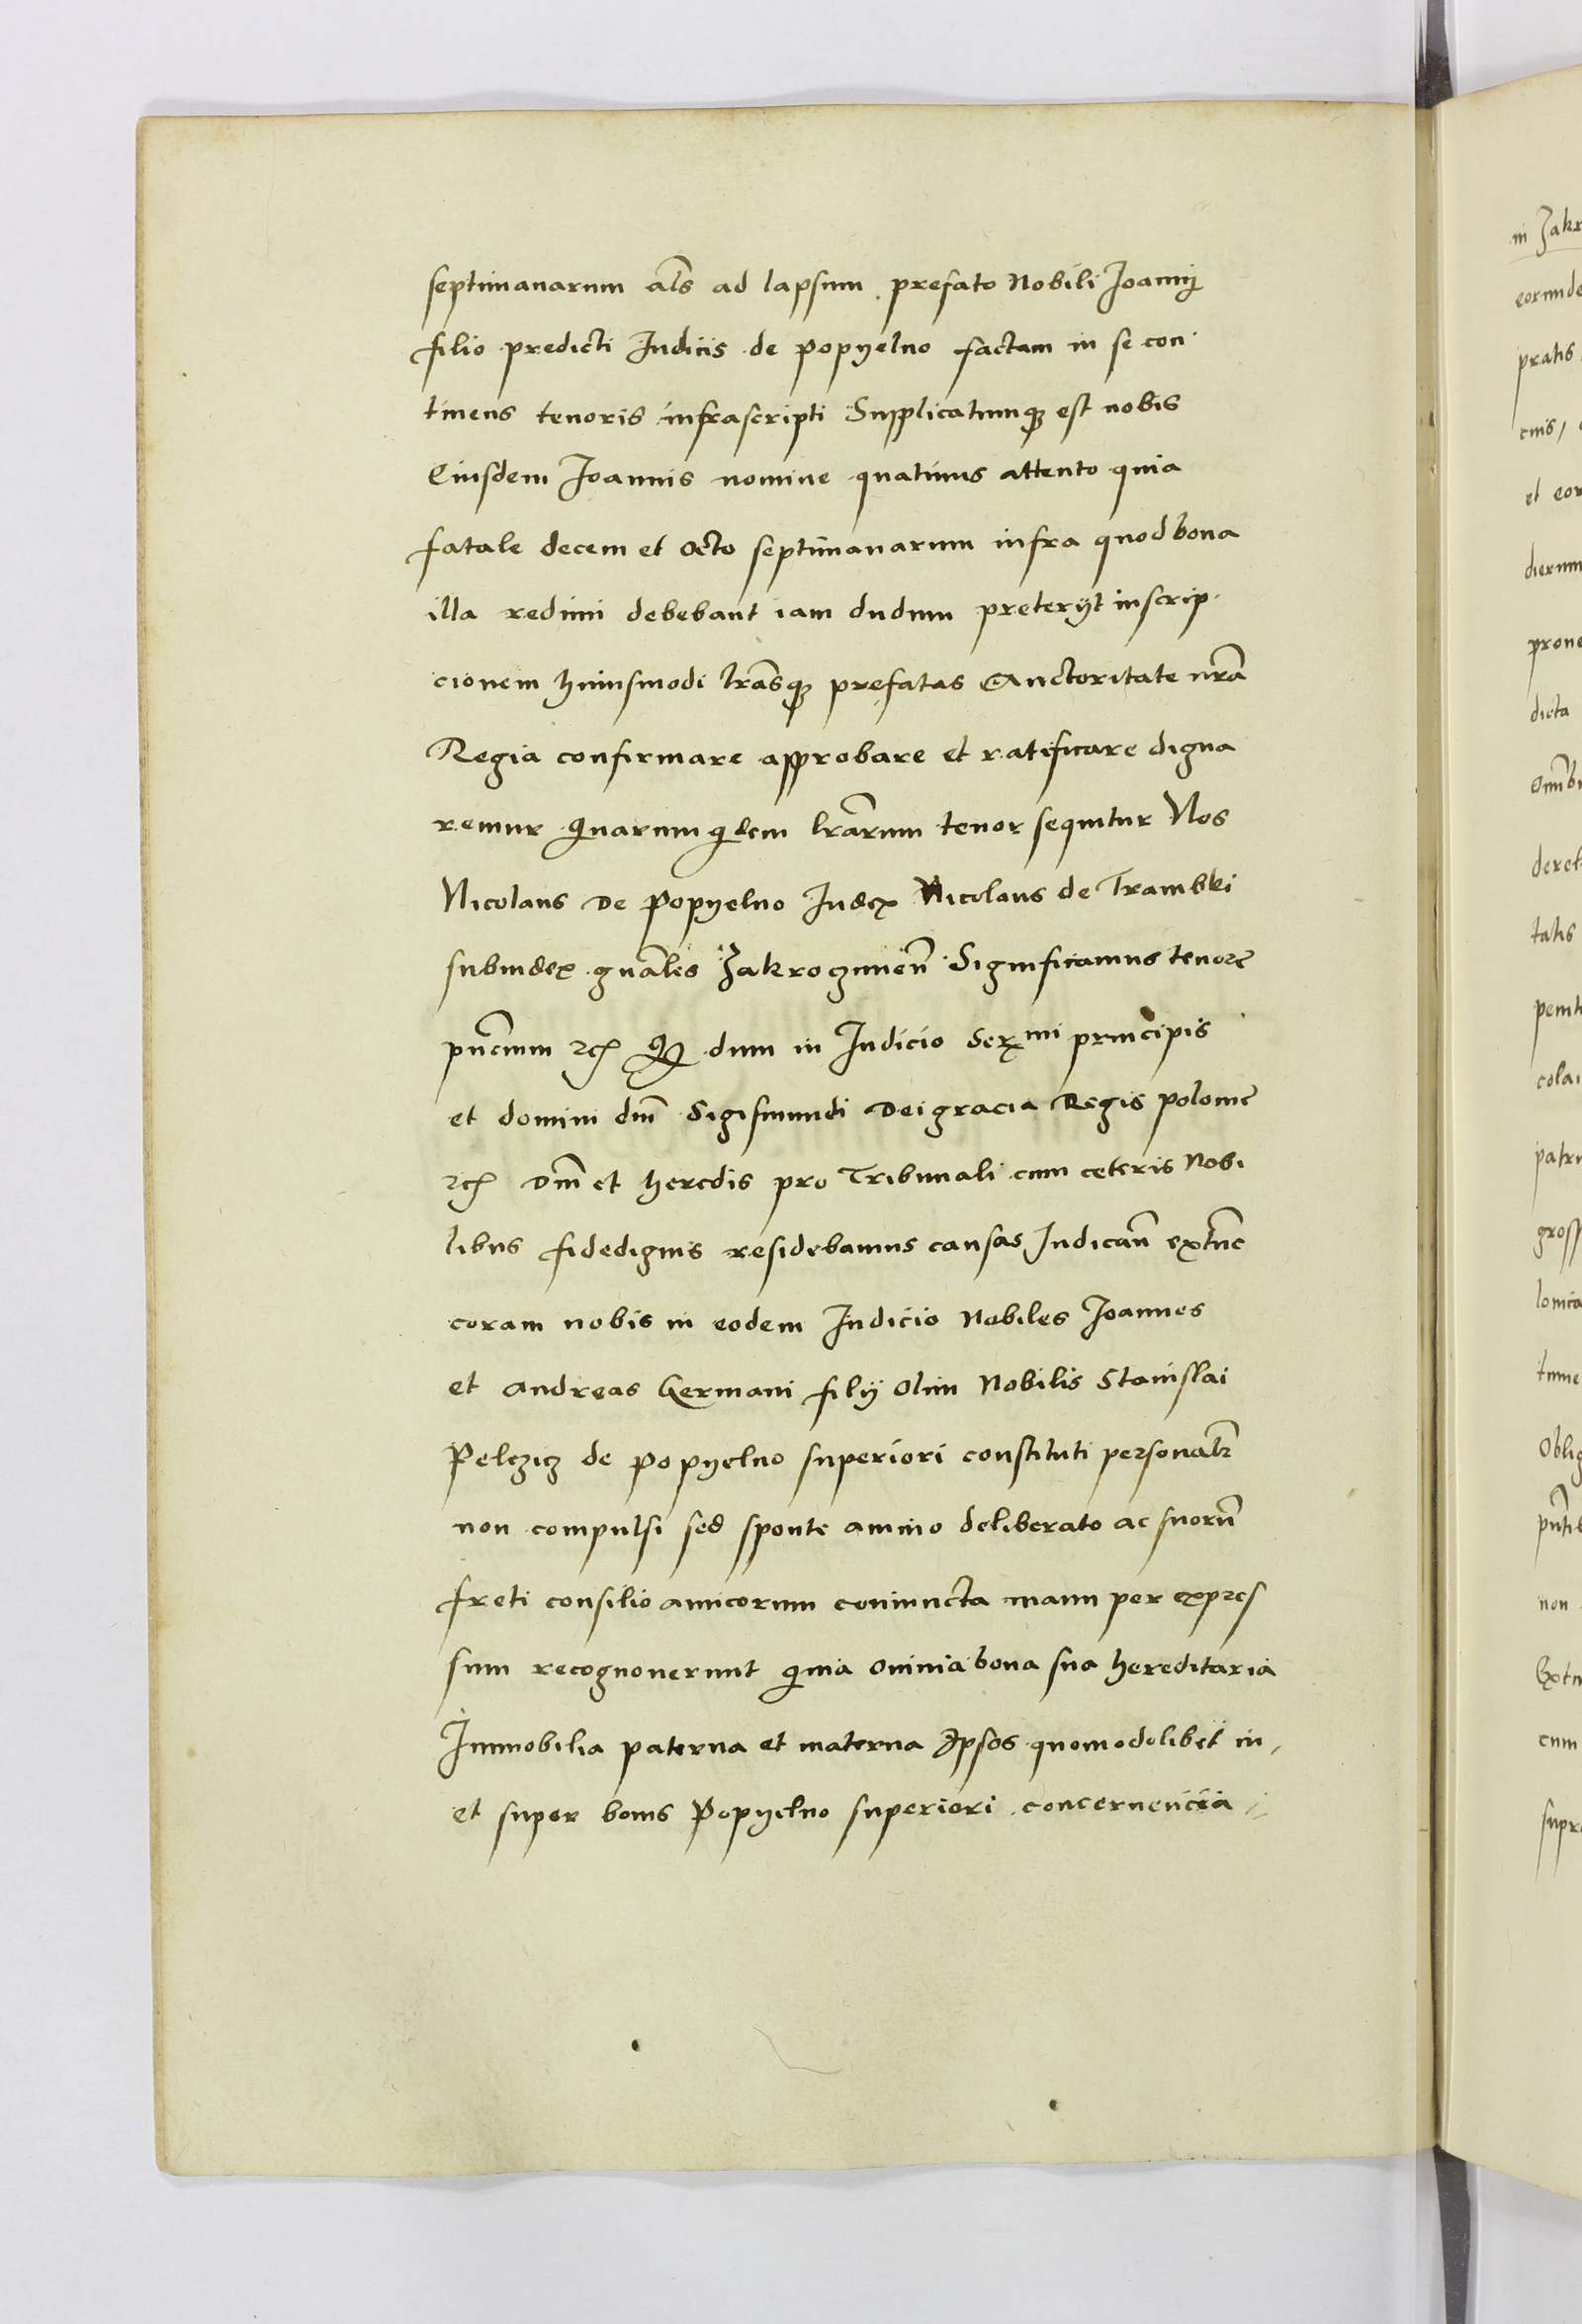 septimanarum als̄ ad lapsum prefato Nobili Joanni
filio predicti Judicis de Popyelno factam in se con
tinens tenoris infrascripti Supplicatumq est nobis
Eiusdem Joannis nomine quatinus attento quia
fatale decem et octo septimanarum infra quod bona
illa redimi debebant iam dudum preterijt inscrip
cionem huiusmodi lr̄asq prefatas Auctoritate nr̄a
Regia confirmare approbare et ratificare digna
remur Quarum qdem lr̄arum tenor sequitur Nos
Nicolaus De Popyelno Judex Nicolaus de Trambki
subiudex gn̄ales Zakroczimien̄ Significamus tenore
pn̄cium zc̄ Q dum in Judicio Serxmi principis
et domini dn̄i Sigismundi Dei gracia Regis Polonie
zc̄ Dn̄i et heredis pro Tribunali cum ceteris Nobi
libus fidedignis residebamus causas Judican̄ extunc
coram nobis in eodem Judicio Nobiles Joannes
et Andreas Germani filij olim Nobilis Stanislai
Pelczicz de Popyelno superiori constituti personalr̄
non compulsi sed sponte animo deliberato ac suorū
freti consilio amicorum coniuncta manu per expres
sum recognouerunt Quia omnia bona sua hereditaria
Immobilia paterna et materna Ipsos quomodolibet in
et super bonis Popyelno superiori concernencia

in Zakr
eorunde
pratis
cuis,
et eor
dierum
prone
dicta
Om̄ib
derel
tatis
penit
cola
patr
gross
lonica
tune
Oblig
pn̄tib
non
Extu
cum
supr